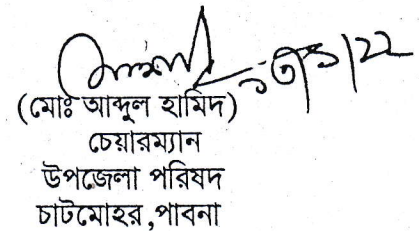 (মোঃ আব্দুল হামিদ)
চেয়ারম্যান
উপজেলা পরিষদ
চাটমোহর,পাবনা